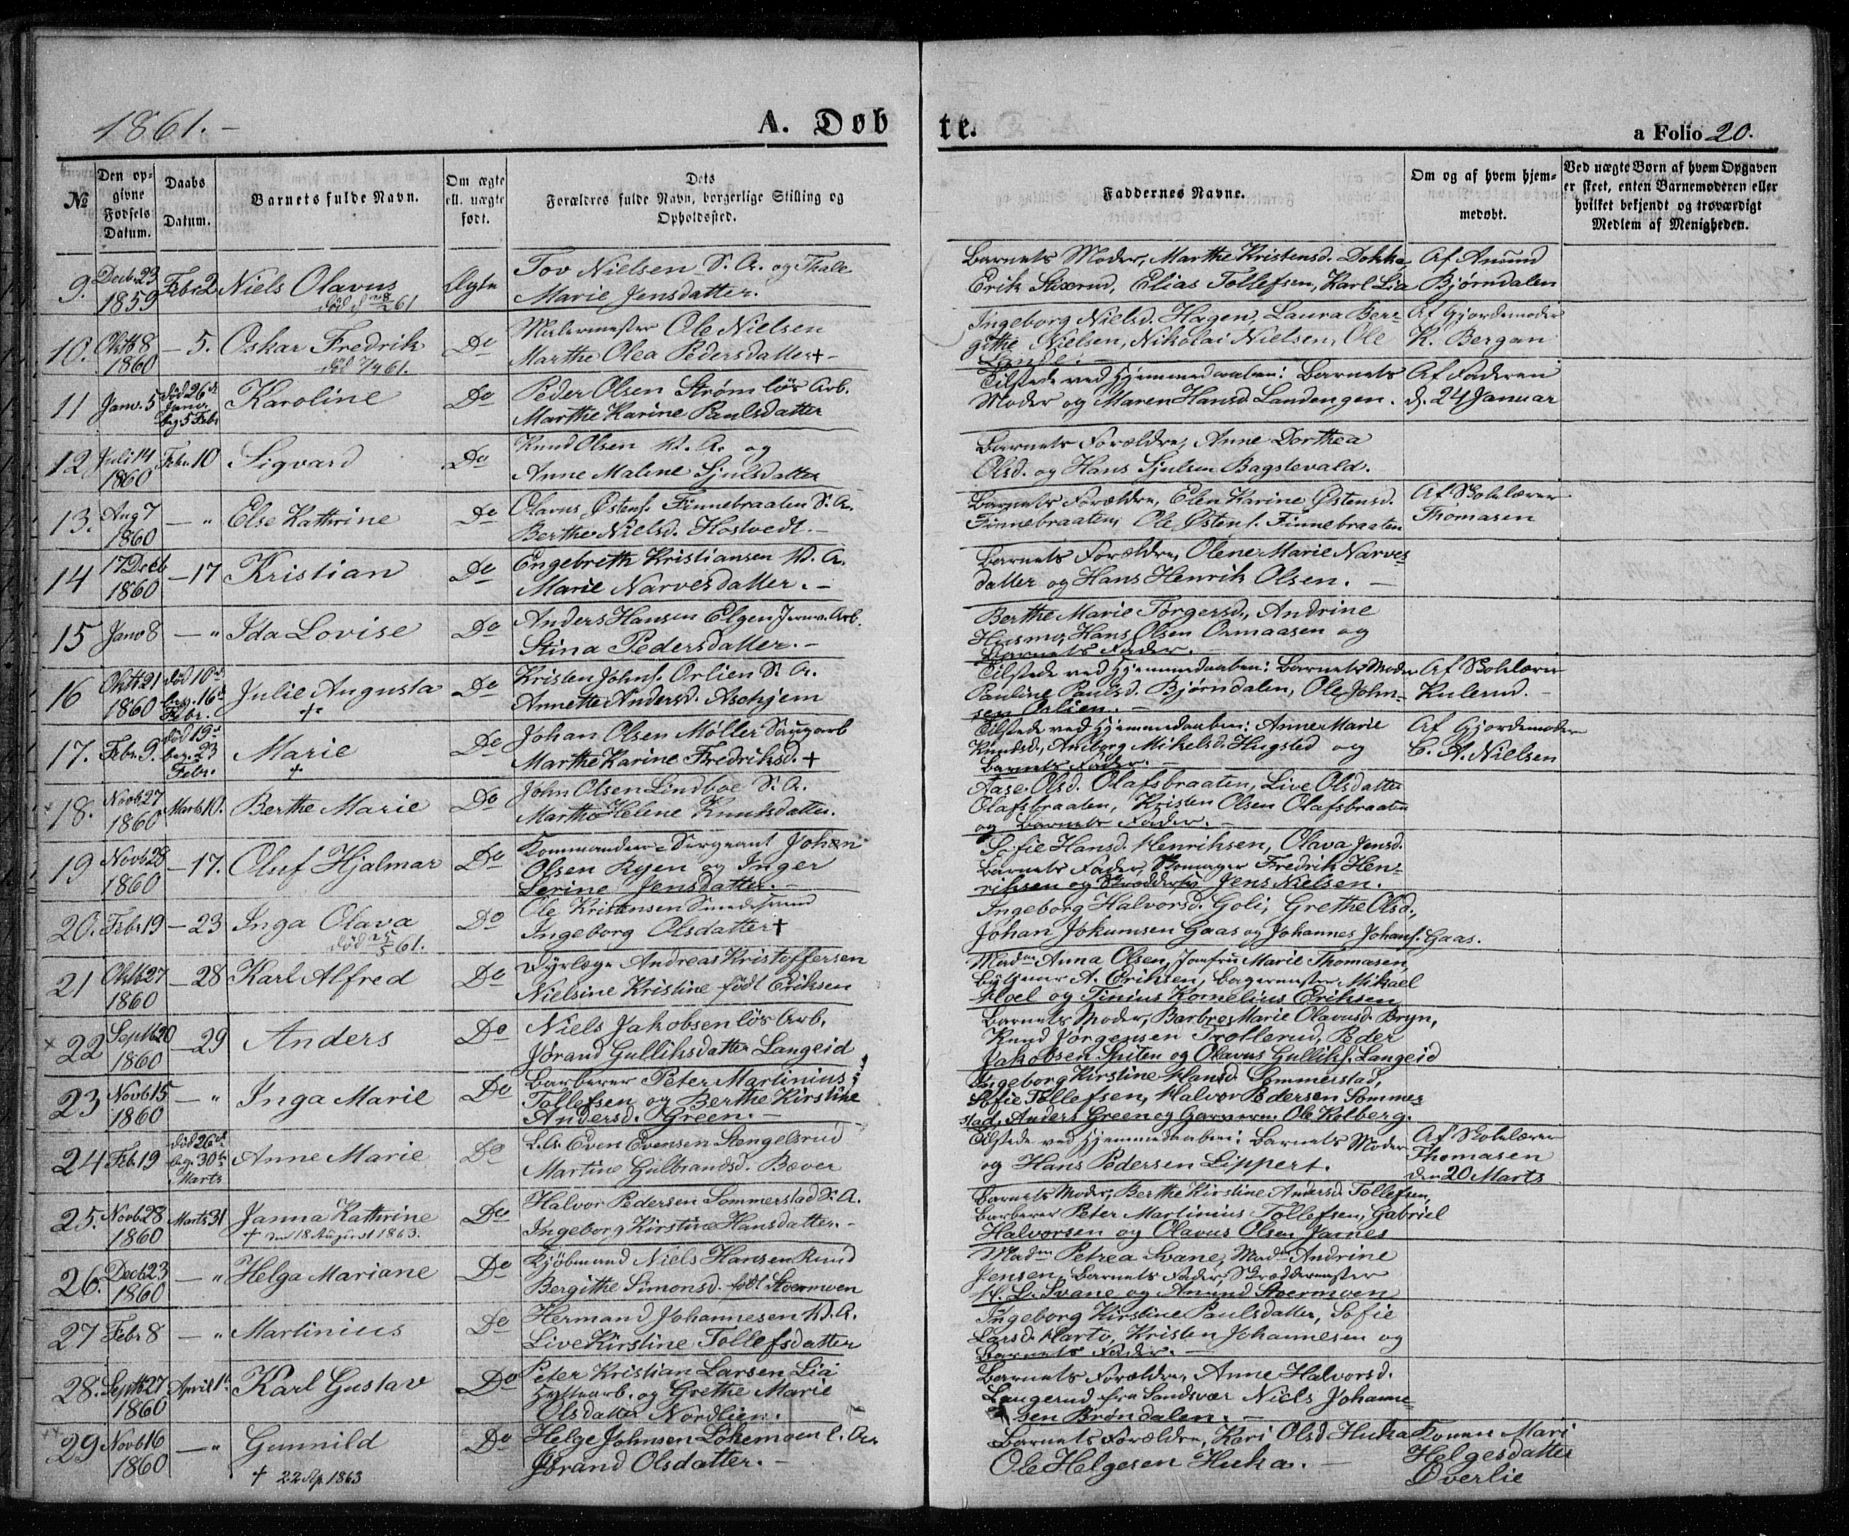 1861.
A. Døbte.
a Folio 20.
№
Den opgivne Fødsels Datum.
Daabs Datum.
Barnets fulde Navn.
Om ægte ell. uægte født.
Dets Forældres fulde Navn, borgerlige Stilling og Opholdssted.
Faddernes Navne.
Om og af hvem hjemmedøbt.
Ved uægte Børn af hvem Opgaven er skeet, enten Barnemoderen eller hvilket bekjendt og troværdigt Medlem af Menigheden.
9. Decb 23 1859 Febr 2 Niels Olavus Ægte
Tov Nielsen S. A. og Thale
Marie Jensdatter.
Barnets Moder, Marthe Kristensd. Dokka,
Erik, Elias Tollefsen, Karl Lia
Af Amund
Bjørndalen
10. Oktb 8 1860 — 5. Oskar Fredrik død 7/9 61. Do
Ole Nielsen
Marthe Olea Pedersdatter +
Ingeborg Nielsd. Hagen, Laura Ber-
githe Nielsen, Nikolai Nielsen, Ole
Lande. —
Af Gjordemoder
K. Bergan
11 Janr. 5 død 26d Janr. beg 5 Febr Karoline Do
Peder Olsen Strøm løs Arb.
Marthe Karine Paulsdatter
Tilstede ved Hjemmedaaben: Barnets
Moder og Maren Hansd. Landengen.
Af Faderen
d. 24 Januar
12 Juli 14 1860 Febr 10 Sigvard Do
Knud Olsen W. A. og
Anne Malene Sjulsdatter
Barnets Forældre, Anne Dorthea
Olsd. og Hans Sjulsen Bagstevald.
13. Aug 7 1860 — " Else Kathrine Do
Olavus Østens. Finnebraaten S. A.
Berthe Nielsd. Hostvedt. —
Barnets Forældre, Elen Karine Østensd.
Finnebraaten, Ole Østens. Finnebraaten
Af Skolelærer
Thomasen
14 17 Decb 1860 — 17 Kristian Do
Engebreth Kristiansen W. A.
Marie Narvesdatter. —
Barnets Forældre, Olene Marie Narves
datter og Hans Henrik Olsen. —
15 Janr 8 — " Ida Lovise Do
Anders Hansen Elgen Jernv. Arb.
Stina Pedersdatter. —
Berthe Marie Torgersd., Andrine
Husmo, Hans Olsen Ormaasen og
Barnets Fader. —
16 Oktb 21 1860 død 10d beg. 16d Febr. Julie Augusta + Do
Kristen Johns. Orlien S. A.
Annette Andersd. Askjem
Tilstede ved Hjemmedaaben: Barnets Moder
Pauline Paulsd. Bjørndalen, Ole John-
sen Orlien. —
Af Skolelærer
Kulerud. —
17. Febr. 9. død 19d beg. 23 Febr. Marie + Do
Johan Olsen Møller Saugarb
Marthe Karine Fredriksd. +
Tilstede ved Hjemmedaaben: Anne Marie
Knudsd., Anborg Mikelsd. Hugsted og
Barnets Fader. —
Af Gjordemoder
C. A. Nielsen
18. Novb 27 1860 Marts 10. Berthe Marie Do
John Olsen Lindboe S. A.
Marthe Helene Knutsdatter.
Aase Olsd. Olafsbraaten, Live Olsdatter
Olafsbraaten, Kristen Olsen Olafsbraaten
og Barnets Fader. —
19 Novb 28 1860 — 17. Oluf Hjalmar Do
Kommandeer-Sergeant Johan
Olsen Ryen og Inger
Serine Jensdatter. —
Sofie Hansd. Henriksen, Olava Jensd.
Barnets Fader, Skomager Fredrik Hen-
riksen og Skrædders. Jens Nielsen.
20. Febr 19 — 23 Inga Olava død 25/5 61. Do
Ole Kristensen
Ingeborg Olsdatter +
Ingeborg Halvorsd. Goli, Grethe Olsd.,
Johan Jokumsen Gaas og Johannes Johans. Gaas.
21 Oktb 27 1860 — 28 Karl Alfred Do
Dyrlæge Andreas Kristoffersen
Nielsine Kristine født Eriksen
Madm Anna Olsen, Jomfru Marie Thomasen,
A. Eriksen, Bagermester Mikael
Hoel og Tinius Kornelius Eriksen
× 22 Septb 20 1860 — 29 Anders Do
Niels Jakobsen løs Arb.
Jørand Gulliksdatter Langeid
Barnets Moder, Barbro Marie Olavusd. Bryn,
Knud Jørgensen Trollerud, Peder
Jakobsen Spiten og Olavus Gulliks. Langeid
23 Novb 15 1860 — " Inga Marie Do
Barberer Peter Martinius
Tollefsen og Berthe Kirstine
Andersd. Green. —
Ingeborg Kirstine Hansd. Sommerstad,
Sofie Tollefsen, Halvor Pedersen Sommer-
stad, Anders Green og Garversv. Ole Kolberg.
24 Feb. 19 død 26d beg. 30te Marts Anne Marie Do
Even Evensen Stengelsrud
Martine Gulbrandsd. Bæver
Tilstede ved Hjemmedaaben: Barnets Moder
og Hans Pedersen Lippert.
Af Skolelærer
Thomasen
den 20 Marts
25. Novb 28 1860 Marts 31 Janna Kathrine + den 18 August 1863. Do
Halvor Pedersen Sommerstad S. A.
Ingeborg Kirstine Hansdatter. —
Barnets Moder, Berthe Kirstine Andersd. Tollefsen,
Barberer Peter Martinius Tollefsen, Gabriel
Halvorsen og Olavus Olsen Jarnes
26. Decb 23 1860 — " Helga Mariane Do
Kjøbmand Niels Hansen Ruud
Bergithe Simonsd. født Stoermoen
Madm Petrea Svane, Madm Andrine
Jensen, Barnets Fader, Skræddermester
H. L. Svane og Amund Stoermoen
27 Febr 8 — " Martinius Do
Hermand Johannesen W. A.
Live Kirstine Tollefsdatter
Ingeborg Kirstine Paulsdatter, Sofie
Larsd. Harto, Kristen Johannesen og
Barnets Fader. —
28. Septb 27 1860 April 1. Karl Gustav Do
Peter Kristian Larsen Lia
Hyttearb. og Grethe Marie
Olsdatter Nordlien.
Barnets Forældre, Anne Halvorsd.
Langerud fra Sandsvær Niels Johanne-
sen Brøndalen. —
29 Novb 16 1860 — " Gunnild + 22 Ap 1863 Do
Helge Johnsen Lokemoen
Jørand Olsdatter. —
Barnets Forældre, Kari Olsd Huka
Ole Helgesen Huka. —
Konen Mari
Helgesdatter
Øverlie